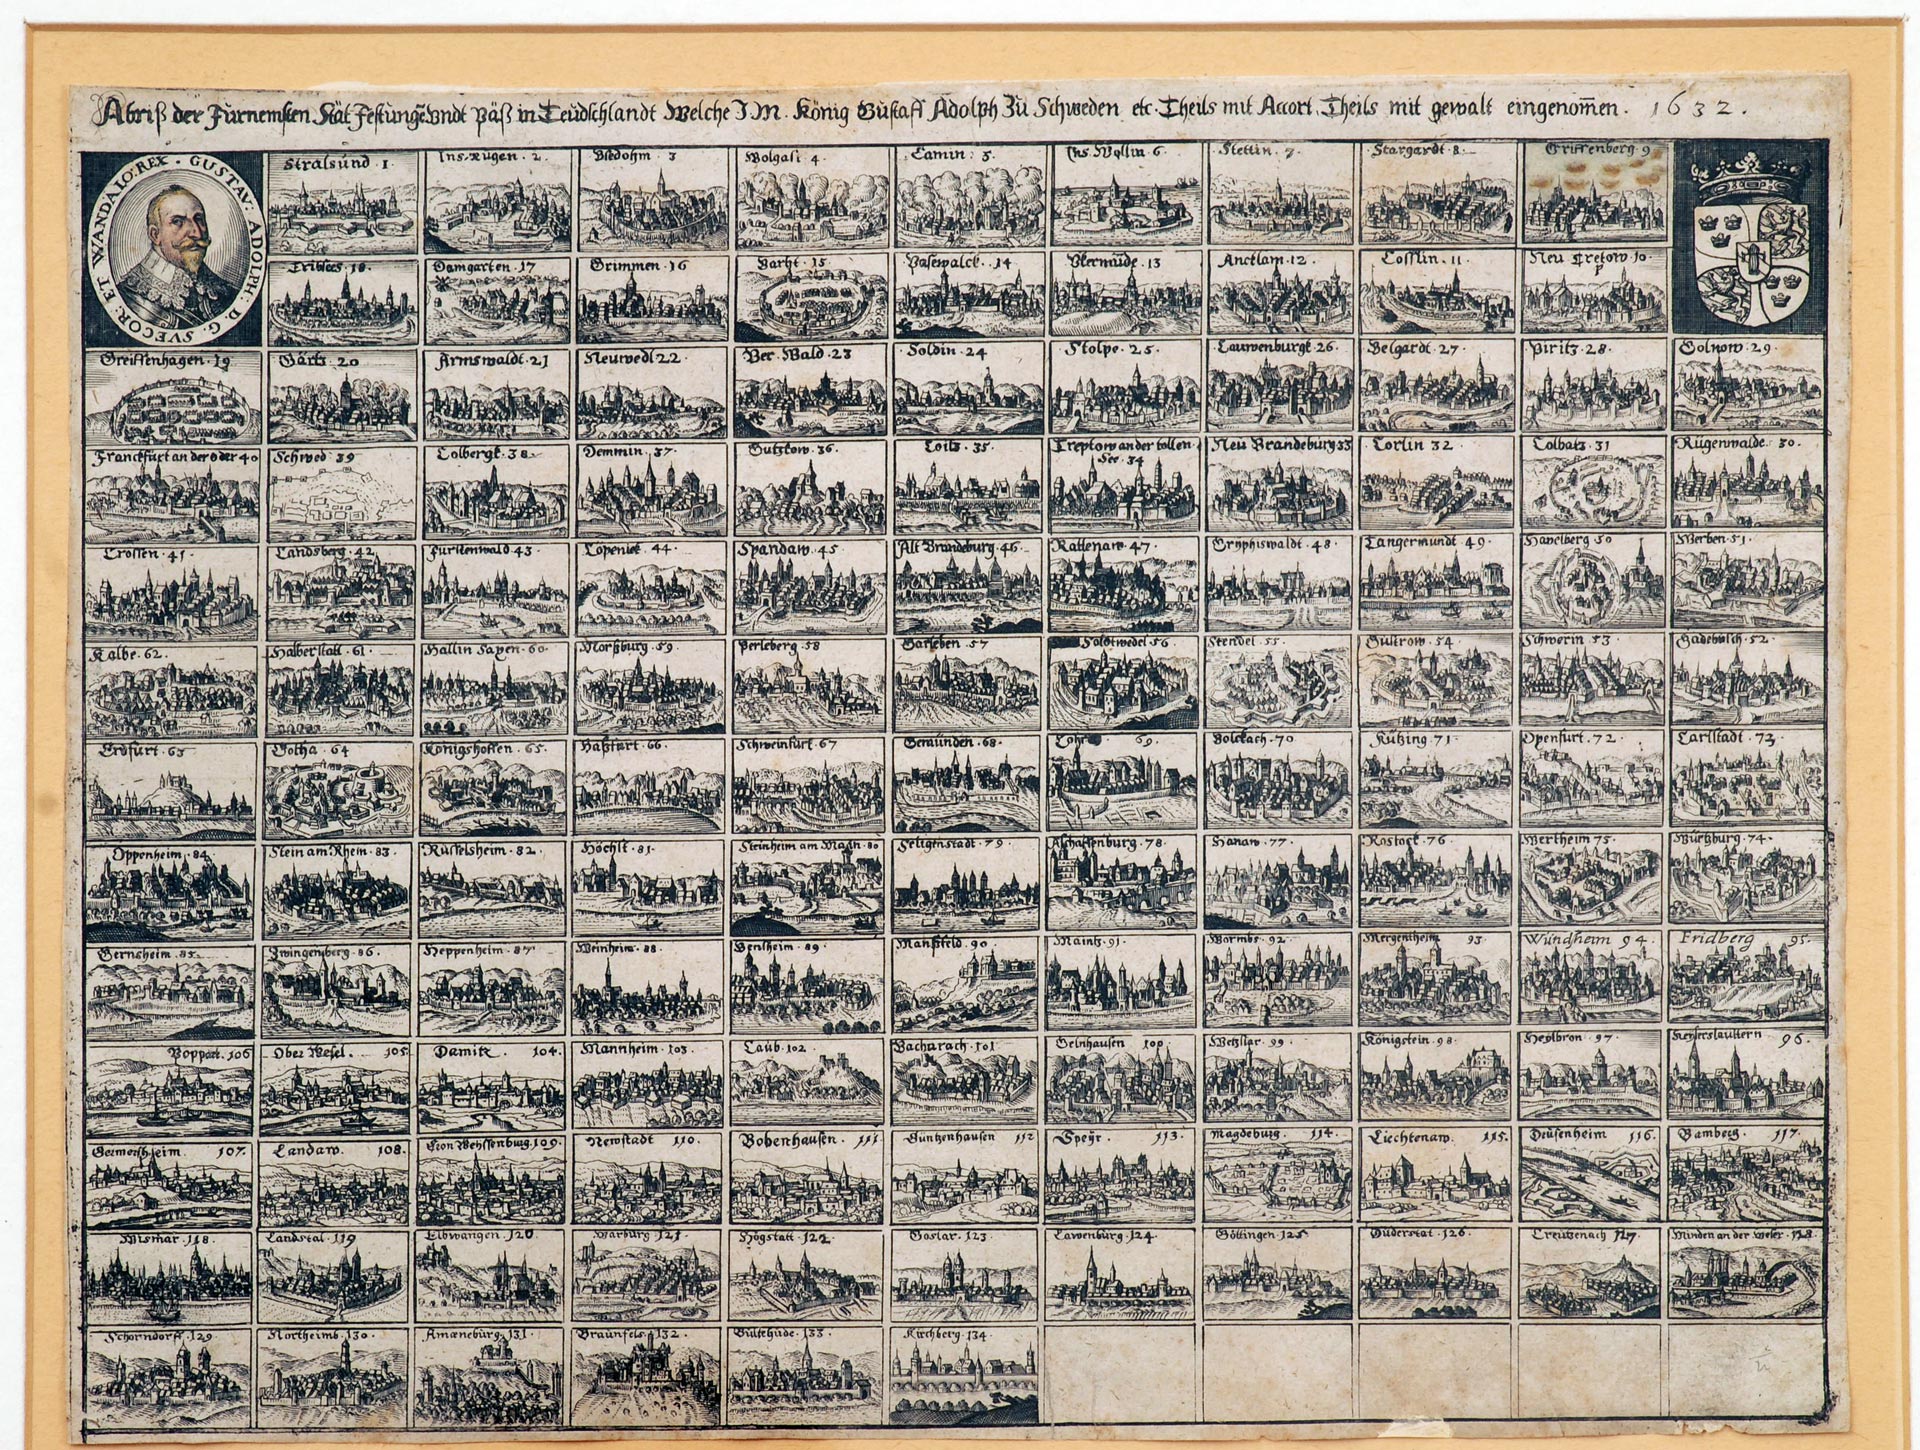 Abriß der Fürnemsten Stät Festunge Vndt Päß in Teudschlandt Welche I. M. König Gustaff Adolph Zu Schweden etc. Theils mit Accort. Theils mit gewalt eingenom̄en. 1632.
GUSTAV: ADOLPH: D. G. SVECOR: ET WANDALO: REX
Stralsund 1
Ins. Rügen. 2.
Vsedohm. 3
Wolgast 4.
Camin: 5.
Ins. Wollin 6.
Stettin. 7
Stargardt. 8.
Griffenberg 9
Tribsees. 18.
Damgarten. 17
Grimmen. 16
Barht. 15
Pasewalck. 14
Vkermude. 13
Ancklam. 12.
Cosslin. 11
Neu Tretow. 10.
p
Greiffenhagen. 19
Gartz 20
Armswaldt. 21
Neuwedl 22.
Ber. Wald. 23
Soldin. 24
Stolpe. 25.
Lauwenburgk. 26.
Belgardt. 27.
Piritz. 28.
Golnow. 29.
Franckfurt an der oder 40
Schwed. 39
Colbergk. 38.
Demmin. 37.
Gutzkow. 36.
Loitz. 35.
Treptow an der tollen
See. 34
Neu Brandeburg 33
Corlin 32.
Colbatz. 31
Rügenwalde. 30.
Crossen. 41.
Landsberg. 42.
Furstenwald. 43.
Copenick. 44.
Spandaw. 45
Alt Brandeburg. 46.
Rattenaw. 47.
Gryphiswaldt. 48.
Tangermundt 49.
Havelberg 50
Werben. 51.
Kalbe. 62.
Halberstatt. 61.
Hall in Saxen. 60.
Morßburg. 59.
Perleberg. 58
Garleben. 57
Soldtwedel 56
Stendel. 55.
Gustrow. 54
Schwerin. 53
Gadebusch. 52.
Erdfurt. 63
Gotha. 64
Königshoffen. 65
Haßfurt. 66.
Schweinfurt. 67
Gemünden. 68.
Lohr 69.
Volckach. 70
Kitzing. 71.
Oxenfurt. 72.
Carlstadt. 73
Oppenheim. 84
Stein am Rheim. 83.
Rüsselsheim. 82.
Höchst. 81.
Steinheim am Mayn. 80
Seligenstadt. 79.
Aschaffenburg. 78.
Hanaw. 77.
Rostock. 76.
Wertheim 75.
Würtzburg. 74.
Gernsheim. 85.
Zwingenberg. 86.
Heppenheim. 87.
Weinheim. 88.
Bensheim. 89.
Manßfeld. 90
Maintz. 91.
Wormbs. 92.
Mergentheim 93
Windheim 94.
Fridberg 95.
Boppart. 106
Ober Wesel. 105
Damitz. 104.
Mannheim. 103.
Caub. 102.
Bacharach. 101
Gelnhausen 100.
Wetzlar. 99.
Königstein. 98.
Heylbron. 97.
Keyserslauttern 96.
Germersheim. 107.
Landaw. 108.
Cron Weyssenburg. 109.
Newstadt 110.
Bobenhausen. 111
Güntzenhausen 112
Speyr. 113.
Magdeburg. 114.
Liechtenaw. 115.
Drüsenheim 116.
Bamberg. 117.
Wismar. 118.
Landstal. 119
Elbwangen. 120
Warburg. 121.
Högstatt. 122
Goslar. 123.
Lawenburg. 124.
Göttingen. 125
Duderstat. 126.
Creutzenach 127
Minden an der Weser. 128
Schorndorff. 129
Northeimb. 130.
Amæneburg. 131.
Braunfels. 132.
Bultehude. 133.
Kirchberg. 134